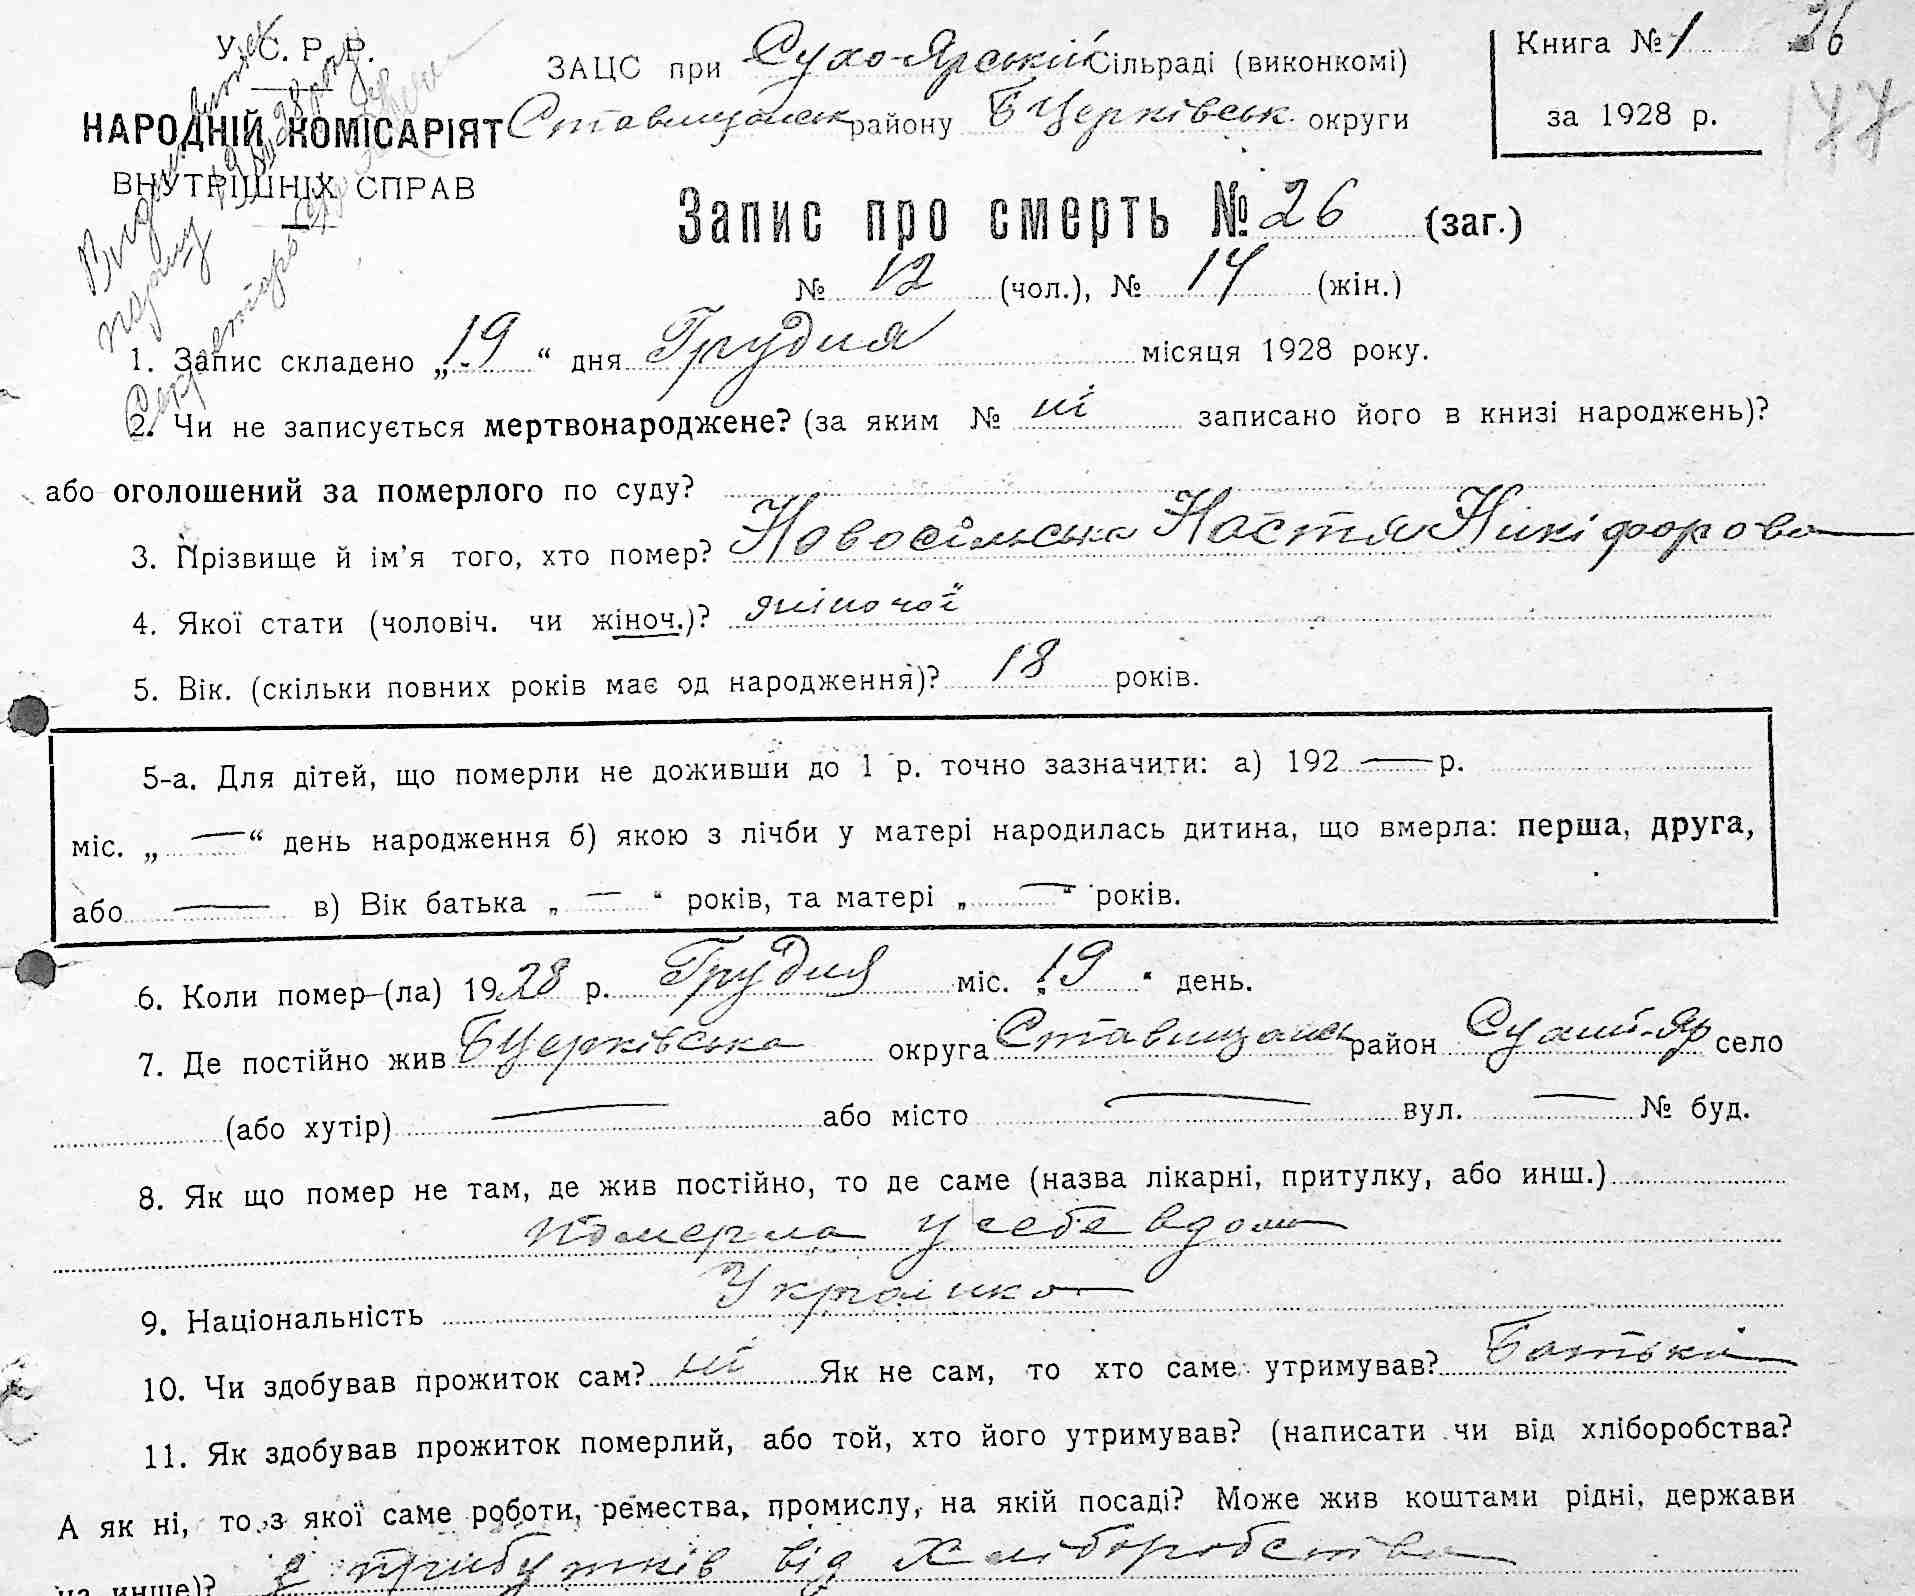 У. С. Р. Р.
НАРОДНІЙ КОМІСАРІЯТ
ВНУТРІШНІХ СПРАВ
ЗАЦС при Сухо-Ярській Сільраді (виконкомі)
Ставищанськ району БЦерківськ. округи
Книга № 1 26
за 1928 р. 177
Запис про смерть № 26 (заг.)
№ 12 (чол.), № 14 (жін.)
1. Запис складено „19“ дня Грудня місяця 1928 року.
2. Чи не записується мертвонароджене? (за яким № ні записано його в книзі народжень)?
або оголошений за померлого по суду?
3. Прізвище й ім'я того, хто помер? Новосільська Настя Никіфорова
4. Якої стати (чоловіч. чи жіноч.)? жіночої
5. Вік. (скільки повних років має од народження)? 18 років.
5-а. Для дітей, що померли не доживши до 1 р. точно зазначити: а) 192 — р.
міс. „ — “ день народження б) якою з лічби у матері народилась дитина, що вмерла: перша, друга,
або — в) Вік батька „ — “ років, та матері „ — “ років.
6. Коли помер-(ла) 1928 р. Грудня міс. „19“ день.
7. Де постійно жив БЦерківська округа Ставищанськ район Сухий-Яр село
(або хутір) — або місто — вул. — № буд.
8. Як що помер не там, де жив постійно, то де саме (назва лікарні, притулку, або инш.)
померла у себе вдома
9. Національність Українка
10. Чи здобував прожиток сам? ні Як не сам, то хто саме утримував? Батько
11. Як здобував прожиток померлий, або той, хто його утримував? (написати чи від хліборобства?
А як ні, то з якої саме роботи, ремества, промислу, на якій посаді? Може жив коштами рідні, держави
на инше)? з прибутків від Хліборобства